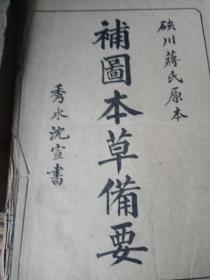 硖川蔣氏原本
補圖本草備要
秀水沈宣書